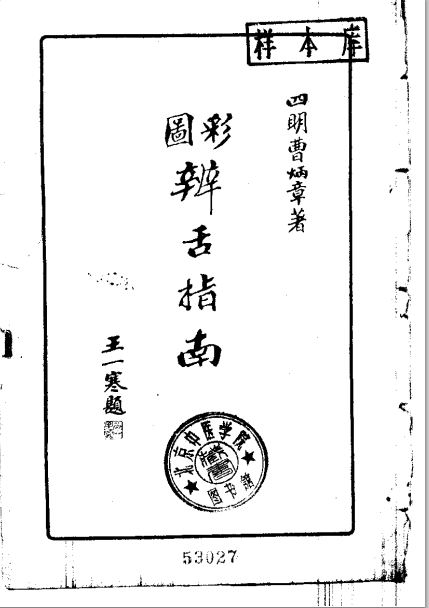 样本库
四明曹炳章著
彩圖
辨舌指南
王一寒題
北京中医学院
图书馆
藏書
53027